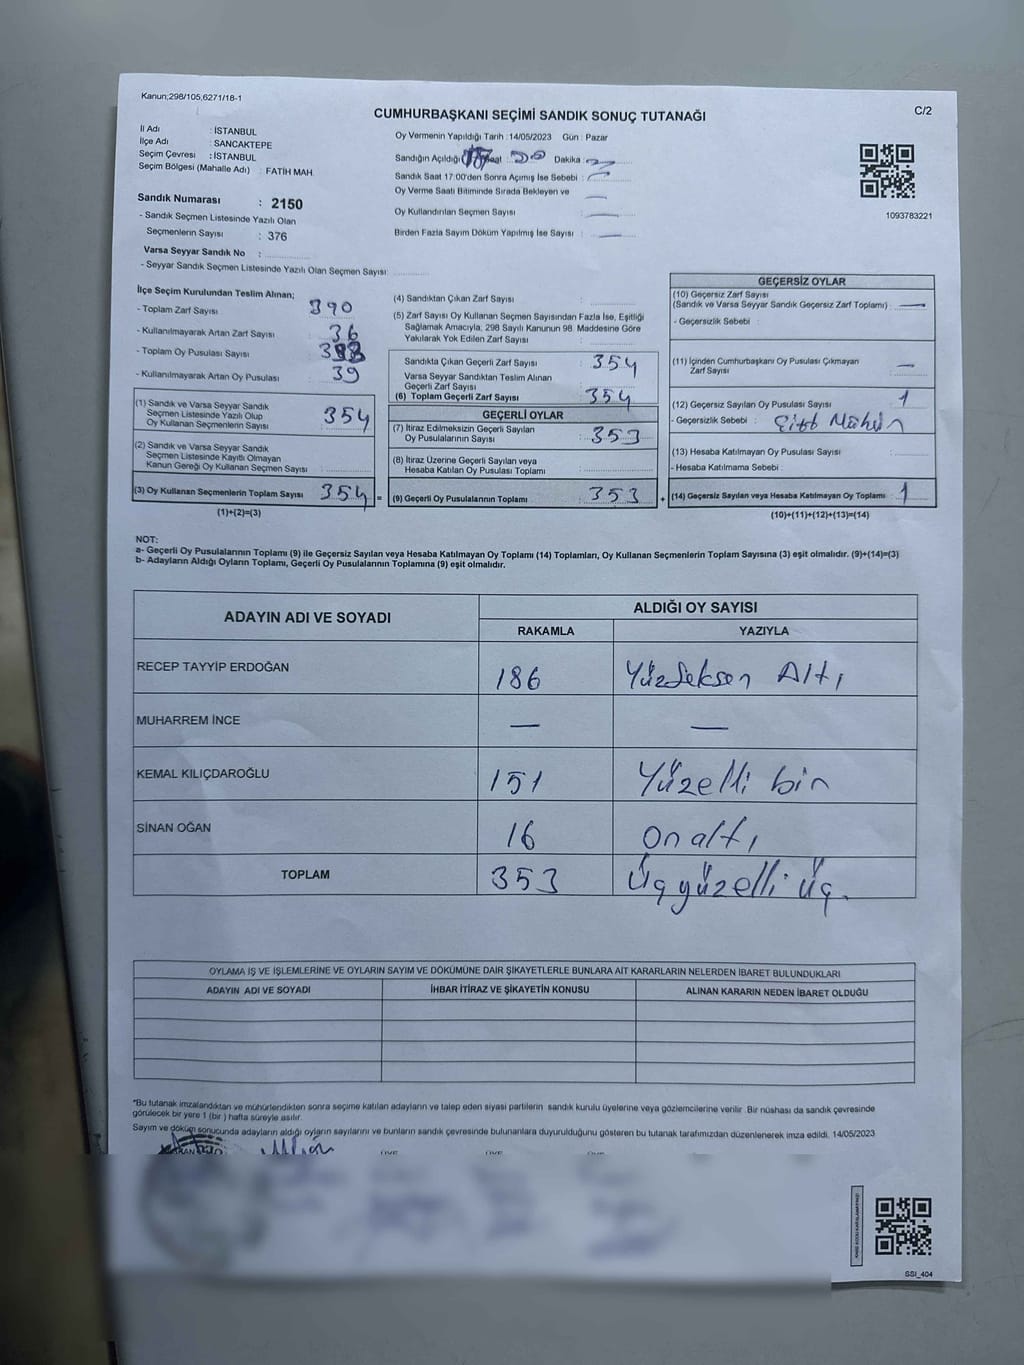 Kanun;298/105,6271/18-1
C/2
CUMHURBAŞKANI SEÇİMİ SANDIK SONUÇ TUTANAĞI
İl Adı : İSTANBUL
İlçe Adı : SANCAKTEPE
Seçim Çevresi : İSTANBUL
Seçim Bölgesi (Mahalle Adı) : FATİH MAH.
Sandık Numarası : 2150
- Sandık Seçmen Listesinde Yazılı Olan
Seçmenlerin Sayısı : 376
Varsa Seyyar Sandık No :
- Seyyar Sandık Seçmen Listesinde Yazılı Olan Seçmen Sayısı:
Oy Vermenin Yapıldığı Tarih : 14/05/2023 Gün : Pazar
Sandığın Açıldığı Dakika :
Sandık Saat 17:00'den Sonra Açımış İse Sebebi :
Oy Verme Saati Bitiminde Sırada Bekleyen ve
Oy Kullandırılan Seçmen Sayısı :
Birden Fazla Sayım Döküm Yapılmış İse Sayısı :
1093783221
İlçe Seçim Kurulundan Teslim Alınan;
- Toplam Zarf Sayısı : 390
- Kullanılmayarak Artan Zarf Sayısı : 36
- Toplam Oy Pusulası Sayısı :
- Kullanılmayarak Artan Oy Pusulası : 39
(1) Sandık ve Varsa Seyyar Sandık
Seçmen Listesinde Yazılı Olup
Oy Kullanan Seçmenlerin Sayısı : 354
(2) Sandık ve Varsa Seyyar Sandık
Seçmen Listesinde Kayıtlı Olmayan
Kanun Gereği Oy Kullanan Seçmen Sayısı :
(3) Oy Kullanan Seçmenlerin Toplam Sayısı : 354 =
(1)+(2)=(3)
(4) Sandıktan Çıkan Zarf Sayısı :
(5) Zarf Sayısı Oy Kullanan Seçmen Sayısından Fazla İse, Eşitliği
Sağlamak Amacıyla; 298 Sayılı Kanunun 98. Maddesine Göre
Yakılarak Yok Edilen Zarf Sayısı :
Sandıkta Çıkan Geçerli Zarf Sayısı : 354
Varsa Seyyar Sandıktan Teslim Alınan
Geçerli Zarf Sayısı :
(6) Toplam Geçerli Zarf Sayısı : 354
GEÇERLİ OYLAR
(7) İtiraz Edilmeksizin Geçerli Sayılan
Oy Pusulalarının Sayısı : 353
(8) İtiraz Üzerine Geçerli Sayılan veya
Hesaba Katılan Oy Pusulası Toplamı :
(9) Geçerli Oy Pusulalarının Toplamı : 353 +
GEÇERSİZ OYLAR
(10) Geçersiz Zarf Sayısı
(Sandık ve Varsa Seyyar Sandık Geçersiz Zarf Toplamı) : —
- Geçersizlik Sebebi :
(11) İçinden Cumhurbaşkanı Oy Pusulası Çıkmayan
Zarf Sayısı : —
(12) Geçersiz Sayılan Oy Pusulası Sayısı : 1
- Geçersizlik Sebebi : Çift Mühür
(13) Hesaba Katılmayan Oy Pusulası Sayısı :
- Hesaba Katılmama Sebebi :
(14) Geçersiz Sayılan veya Hesaba Katılmayan Oy Toplamı : 1
(10)+(11)+(12)+(13)=(14)
NOT:
a- Geçerli Oy Pusulalarının Toplamı (9) ile Geçersiz Sayılan veya Hesaba Katılmayan Oy Toplamı (14) Toplamları, Oy Kullanan Seçmenlerin Toplam Sayısına (3) eşit olmalıdır. (9)+(14)=(3)
b- Adayların Aldığı Oyların Toplamı, Geçerli Oy Pusulalarının Toplamına (9) eşit olmalıdır.
ADAYIN ADI VE SOYADI
ALDIĞI OY SAYISI
RAKAMLA YAZIYLA
RECEP TAYYİP ERDOĞAN 186 Yüzseksen Altı
MUHARREM İNCE — —
KEMAL KILIÇDAROĞLU 151 Yüzelli bir
SİNAN OĞAN 16 on altı
TOPLAM 353 Üçyüzelli üç.
OYLAMA İŞ VE İŞLEMLERİNE VE OYLARIN SAYIM VE DÖKÜMÜNE DAİR ŞİKAYETLERLE BUNLARA AİT KARARLARIN NELERDEN İBARET BULUNDUKLARI
ADAYIN ADI VE SOYADI İHBAR İTİRAZ VE ŞİKAYETİN KONUSU ALINAN KARARIN NEDEN İBARET OLDUĞU
*Bu tutanak imzalandıktan ve mühürlendikten sonra seçime katılan adayların ve talep eden siyasi partilerin sandık kurulu üyelerine veya gözlemcilerine verilir. Bir nüshası da sandık çevresinde
görülecek bir yere 1 (bir ) hafta süreyle asılır.
Sayım ve döküm sonucunda adayların aldığı oyların sayılarını ve bunların sandık çevresinde bulunanlara duyurulduğunu gösteren bu tutanak tarafımızdan düzenlenerek imza edildi. 14/05/2023
SSI_404